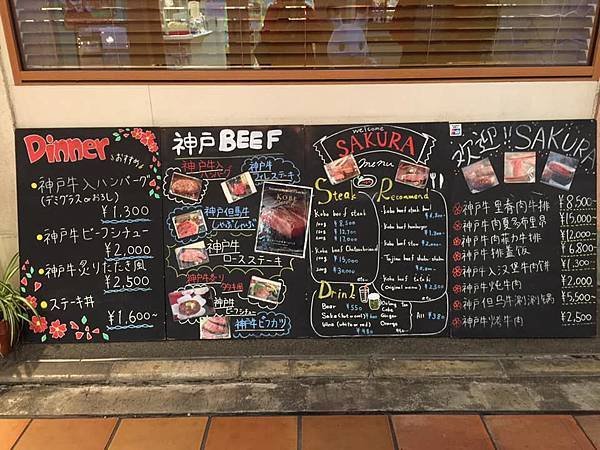 Dinner
おすすめ
神戸牛入ハンバーグ
(デミグラス or おろし)
¥1,300
神戸牛ビーフシチュー
¥2,000
神戸牛炙りたたき風
¥2,500
ステーキ丼
¥1,600~
神戸 BEEF
神戸牛入り
ハンバーグ
神戸牛
フィレステーキ
神戸但馬牛
しゃぶしゃぶ
KOBE
神戸牛
ロースステーキ
神戸牛炙り
タタキ風
神戸牛
ビーフシチュー
神戸牛ビフカツ
welcome
SAKURA
menu
Steak
Kobe beef steak
100g ¥8,500
¥15,000
Recommend
Kobe beef steak
Kobe beef hamburg
Kobe beef stew ¥2,000~
Tajima beef shabu-shabu
Kobe beef tataki
(original menu) ¥2,500
etc...
Drink
Beer ¥550
Sake (hot or cool)
Wine (white or red)
Oolong tea
Coke
Ginger
Orange
etc
All ¥380
欢迎!! SAKURA
神戸牛里脊肉牛排 ¥8,500~
¥15,000~
神戸牛肉菲力牛排 ¥12,000~
神戸牛排盖饭 ¥6,800~
神戸牛入汉堡牛肉饼 ¥1,300~
神戸牛炖牛肉 ¥2,000~
神戸但马牛涮涮锅 ¥5,500~
神戸牛烤牛肉 ¥2,500